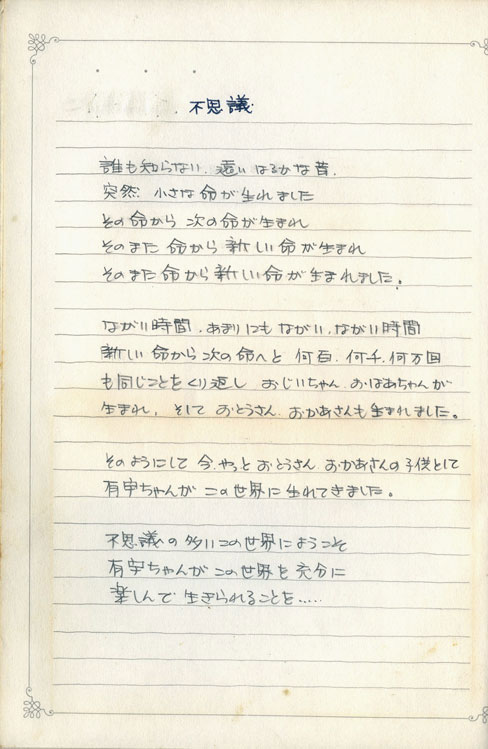 不思議
誰も知らない、遠い はるかな昔、
突然 小さな命が生れました
その命から 次の命が生まれ
そのまた 命から新しい命が生まれ
そのまた命から新しい命が生まれました。
ながい時間、あまりにも ながい、ながい時間
新しい 命から次の命へと 何百、何千、何万回
も同じことをくり返し おじいちゃん、おばあちゃんが
生まれ、そして おとうさん、おかあさんも生まれました。
そのようにして 今、やっと おとうさん、おかあさんの子供として
有宇ちゃんが この世界に生れてきました。
不思議の多いこの世界にようこそ
有宇ちゃんが この世界を 充分に
楽しんで 生きられることを.....